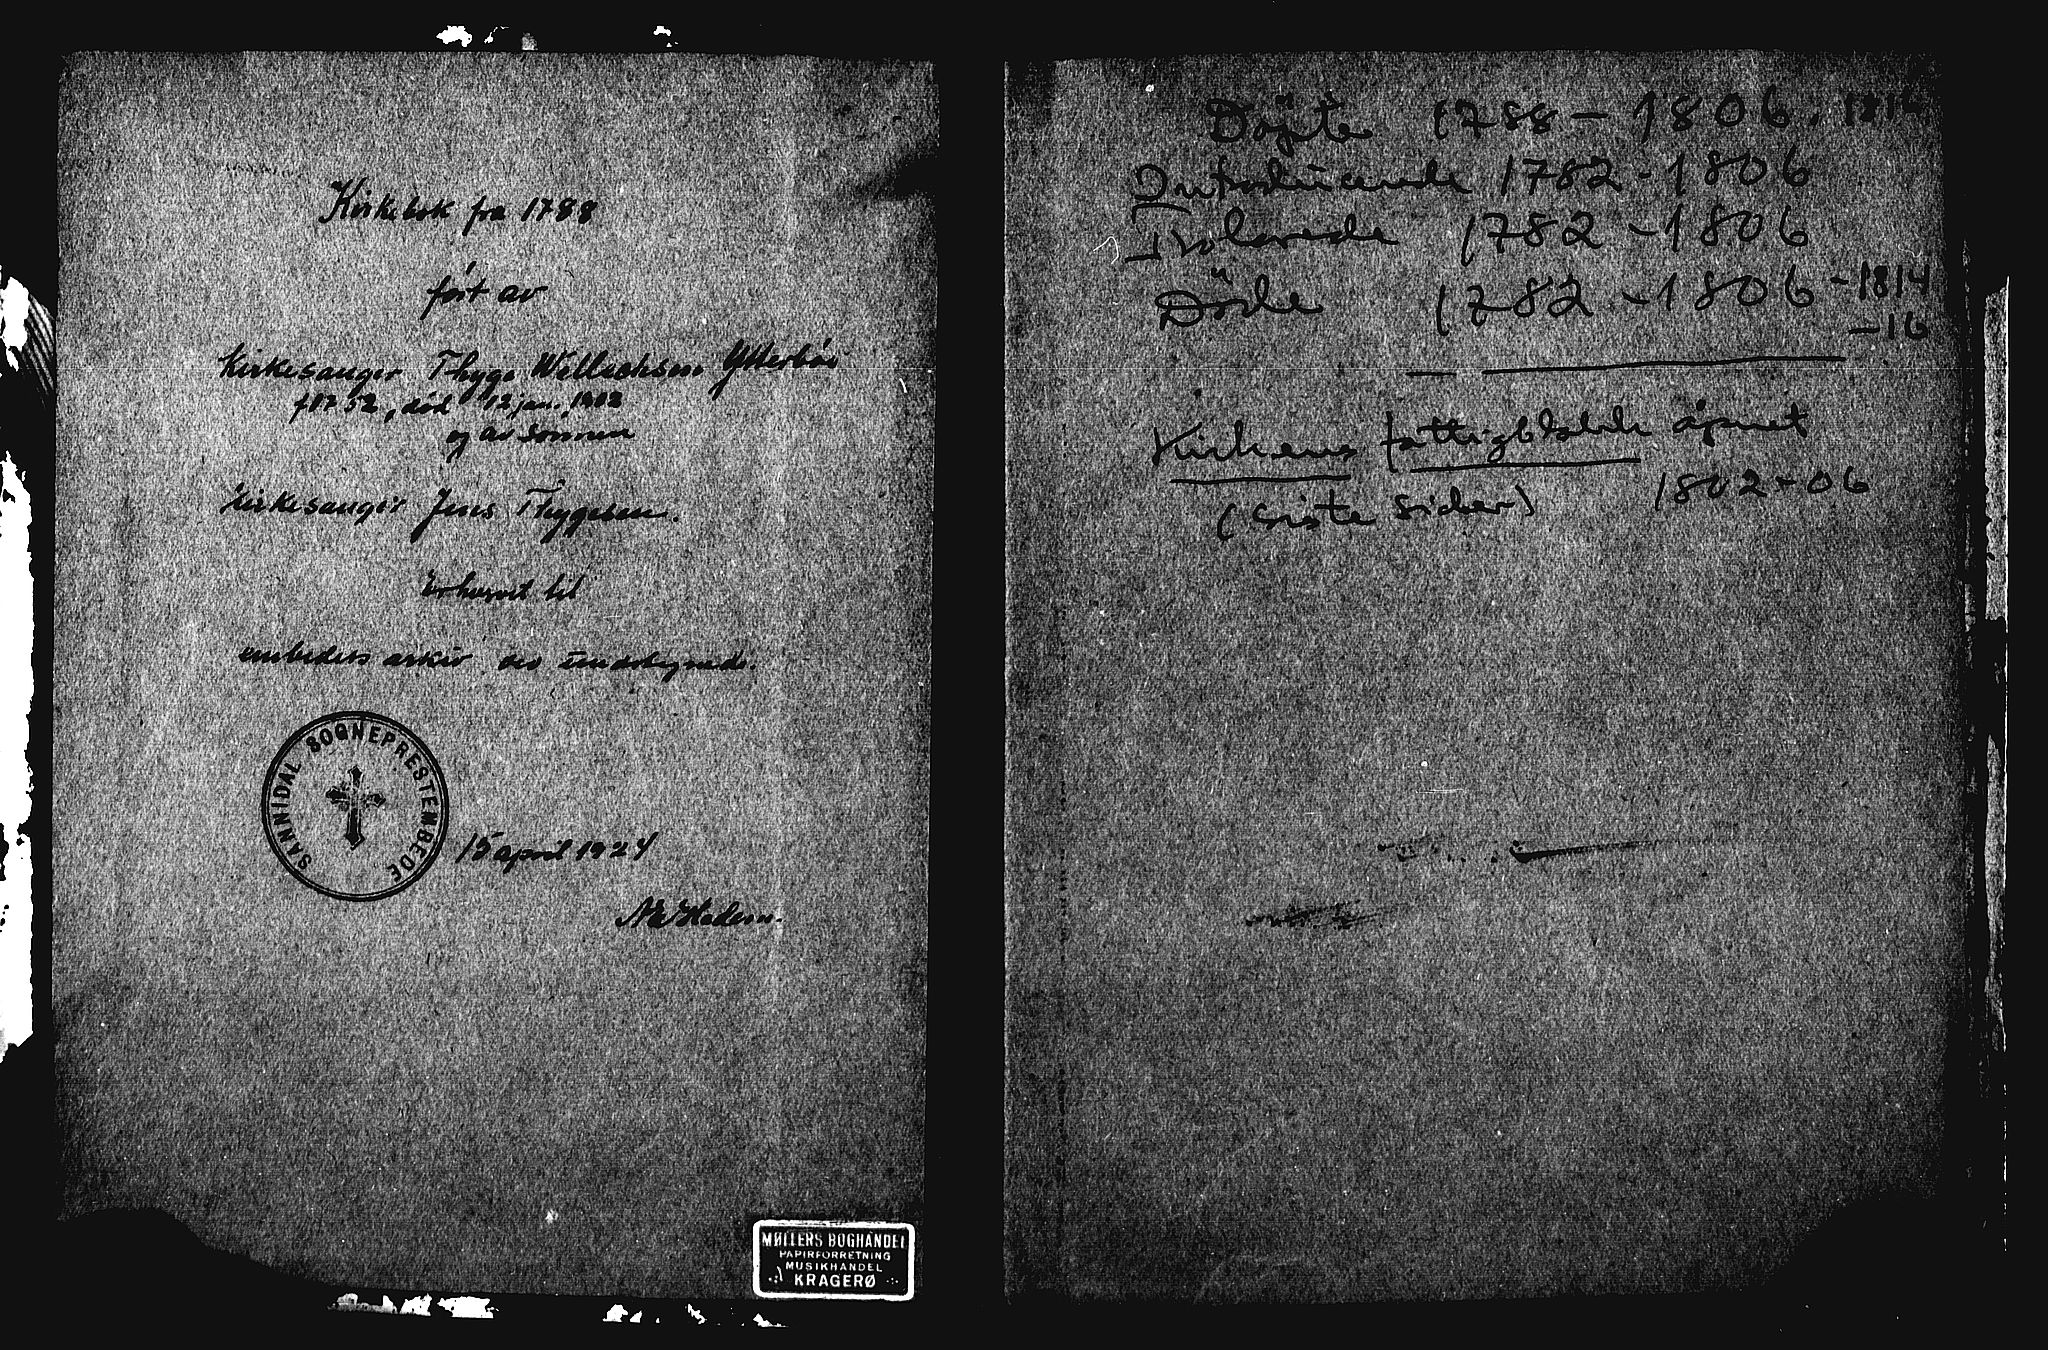 Kirkebok fra 1788
ført av
Kirkesanger Thyge Willechsen Ytterbøe
f 1732, død 12 jan. 1802
og av sønnen
kirkesanger Jens Thygesen.
erhvervet til
embedets arkiv ved undertegnede.
SANNIDAL SOGNEPRESTEMBEDE
15 april 1924
MØLLERS BOGHANDEL
PAPIRFORRETNING
MUSIKHANDEL
KRAGERØ
Döpte 1788 – 1806. 1814
Introducerede 1782 - 1806
Trolovede 1782 – 1806
Döde 1782 – 1806 – 1814
– 16
Kirkens fattigblokk åpnet
(siste sider) 1802 – 06